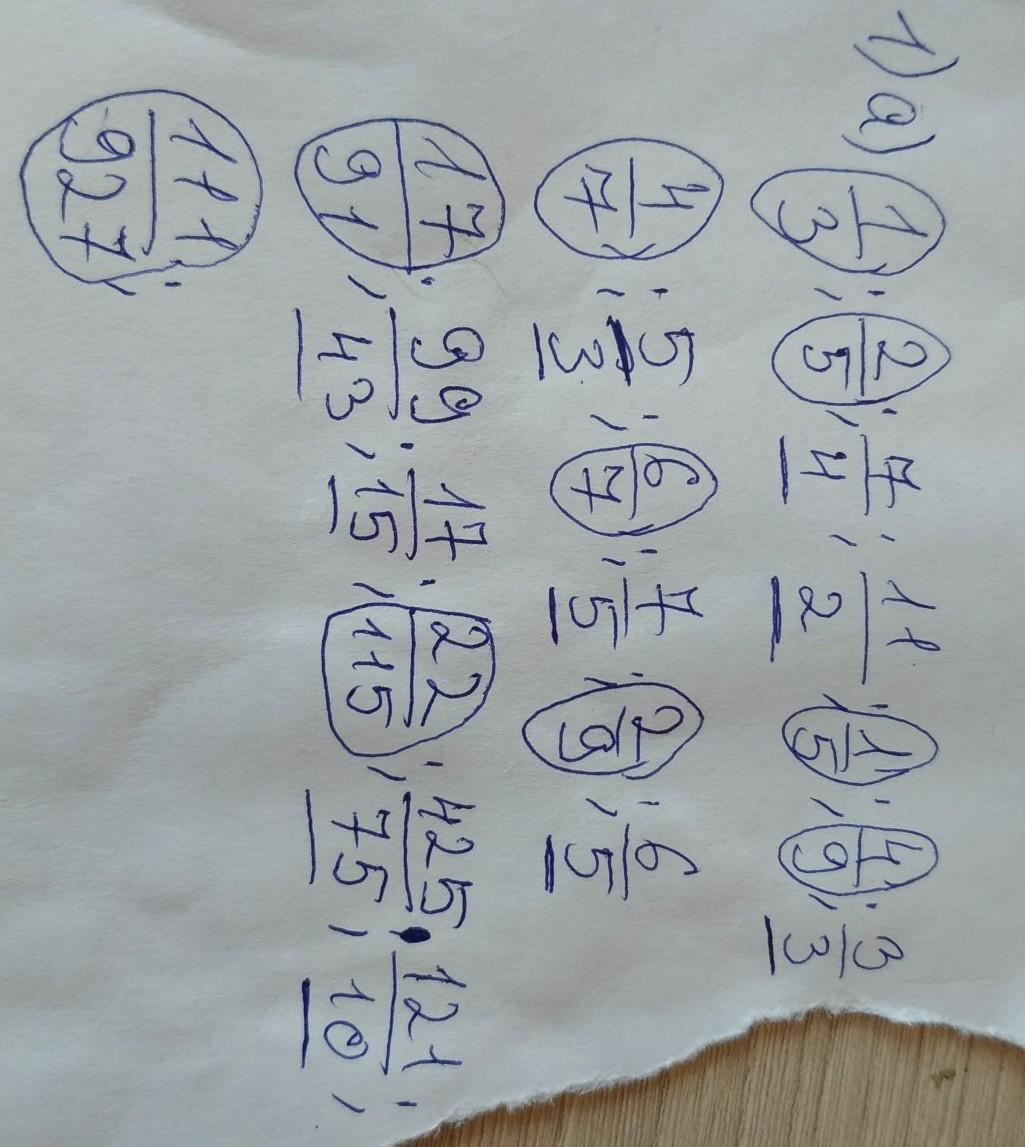 1) a) 1/3; 2/5; 7/4; 11/2; 1/5; 4/9; 3/3
4/7; 5/3; 6/7; 7/5; 2/9; 6/5
17/91; 99/43; 17/15; 22/115; 425/75; 121/10;
111/927;